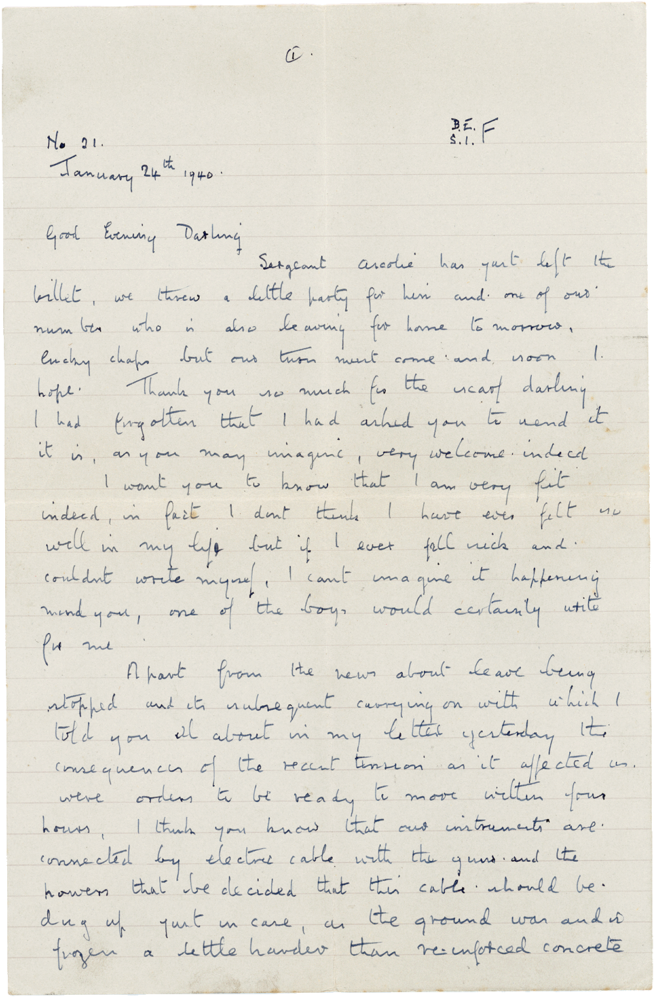 ①.
B.E.F
S.1.
No 21.
January 24th 1940.
Good Evening Darling
Sergeant has just left the
billet, we threw a little party for him and one of our
number who is also leaving for home tomorrow,
lucky chaps but our turn must come and soon I
hope. Thank you so much for the scarf darling
I had forgotten that I had asked you to send it
it is, as you may imagine, very welcome indeed
I want you to know that I am very fit
indeed, in fact I dont think I have ever felt so
well in my life but if I ever fell sick and
couldnt write myself, I cant imagine it happening
mind you, one of the boys would certainly write
for me.
Apart from the news about leave being
stopped and its subsequent carrying on with which I
told you all about in my letter yesterday the
consequences of the recent tension as it affected us
were orders to be ready to move within four
hours, I think you know that our instruments are
connected by electric cable with the guns and the
powers that be decided that this cable should be
dug up just in case, as the ground was and is
frozen a little harder than re-inforced concrete